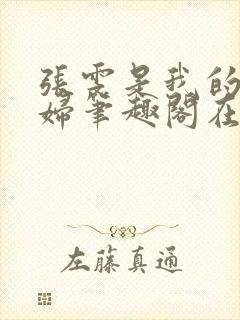 張雲是我的
婦筆趣閣在
左藤真通